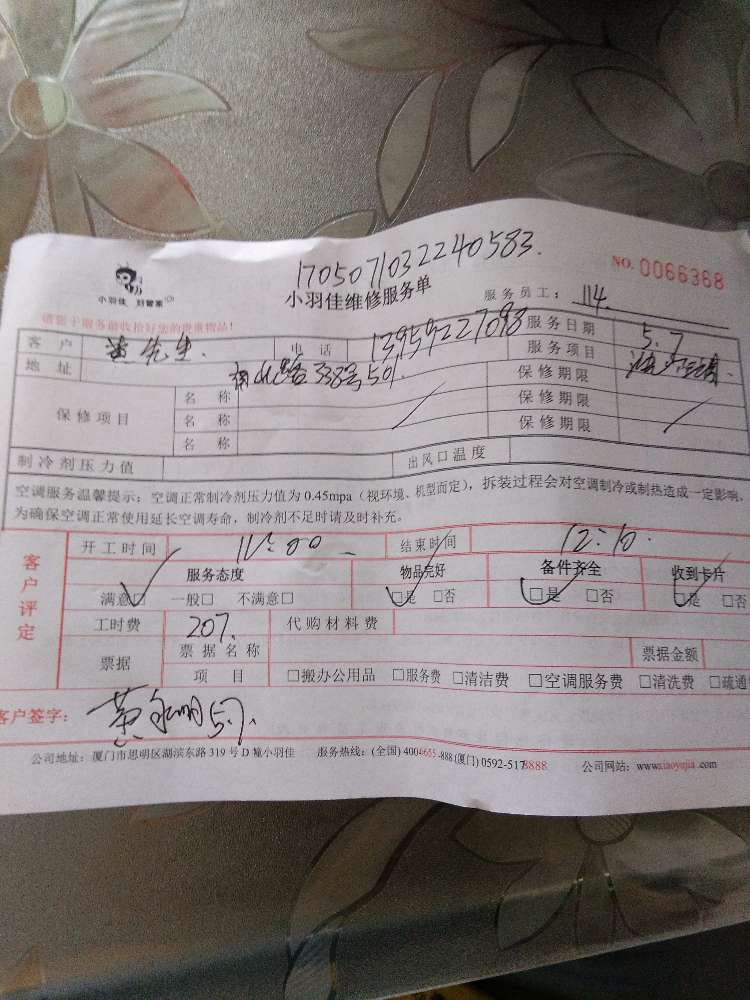 170507032240583.
小羽佳 好管家
小羽佳维修服务单
NO. 0066368
服务员工： 114.
请您于服务前收拾好您的贵重物品！
客户 黄先生. 电话 13959227098 服务日期 5.7
地址 338号501 服务项目 洗空调
保修项目 名称 保修期限
名称 保修期限
名称 保修期限
制冷剂压力值 出风口温度
空调服务温馨提示：空调正常制冷剂压力值为 0.45mpa（视环境、机型而定），拆装过程会对空调制冷或制热造成一定影响，
为确保空调正常使用延长空调寿命，制冷剂不足时请及时补充。
客户评定
开工时间 11:00 结束时间 12:10.
服务态度 物品完好 备件齐全 收到卡片
满意☑ 一般□ 不满意□ ☑是 □否 ☑是 □否 ☑是 □否
工时费 207. 代购材料费
票据 票据名称 票据金额
项目 □搬办公用品 □服务费 □清洁费 □空调服务费 □清洗费 □疏通
客户签字： 黄 明 5.7.
公司地址：厦门市思明区湖滨东路 319 号 D 幢小羽佳 服务热线：(全国) 4004655-888 (厦门) 0592-5178888 公司网站：www.xiaoyujia.com